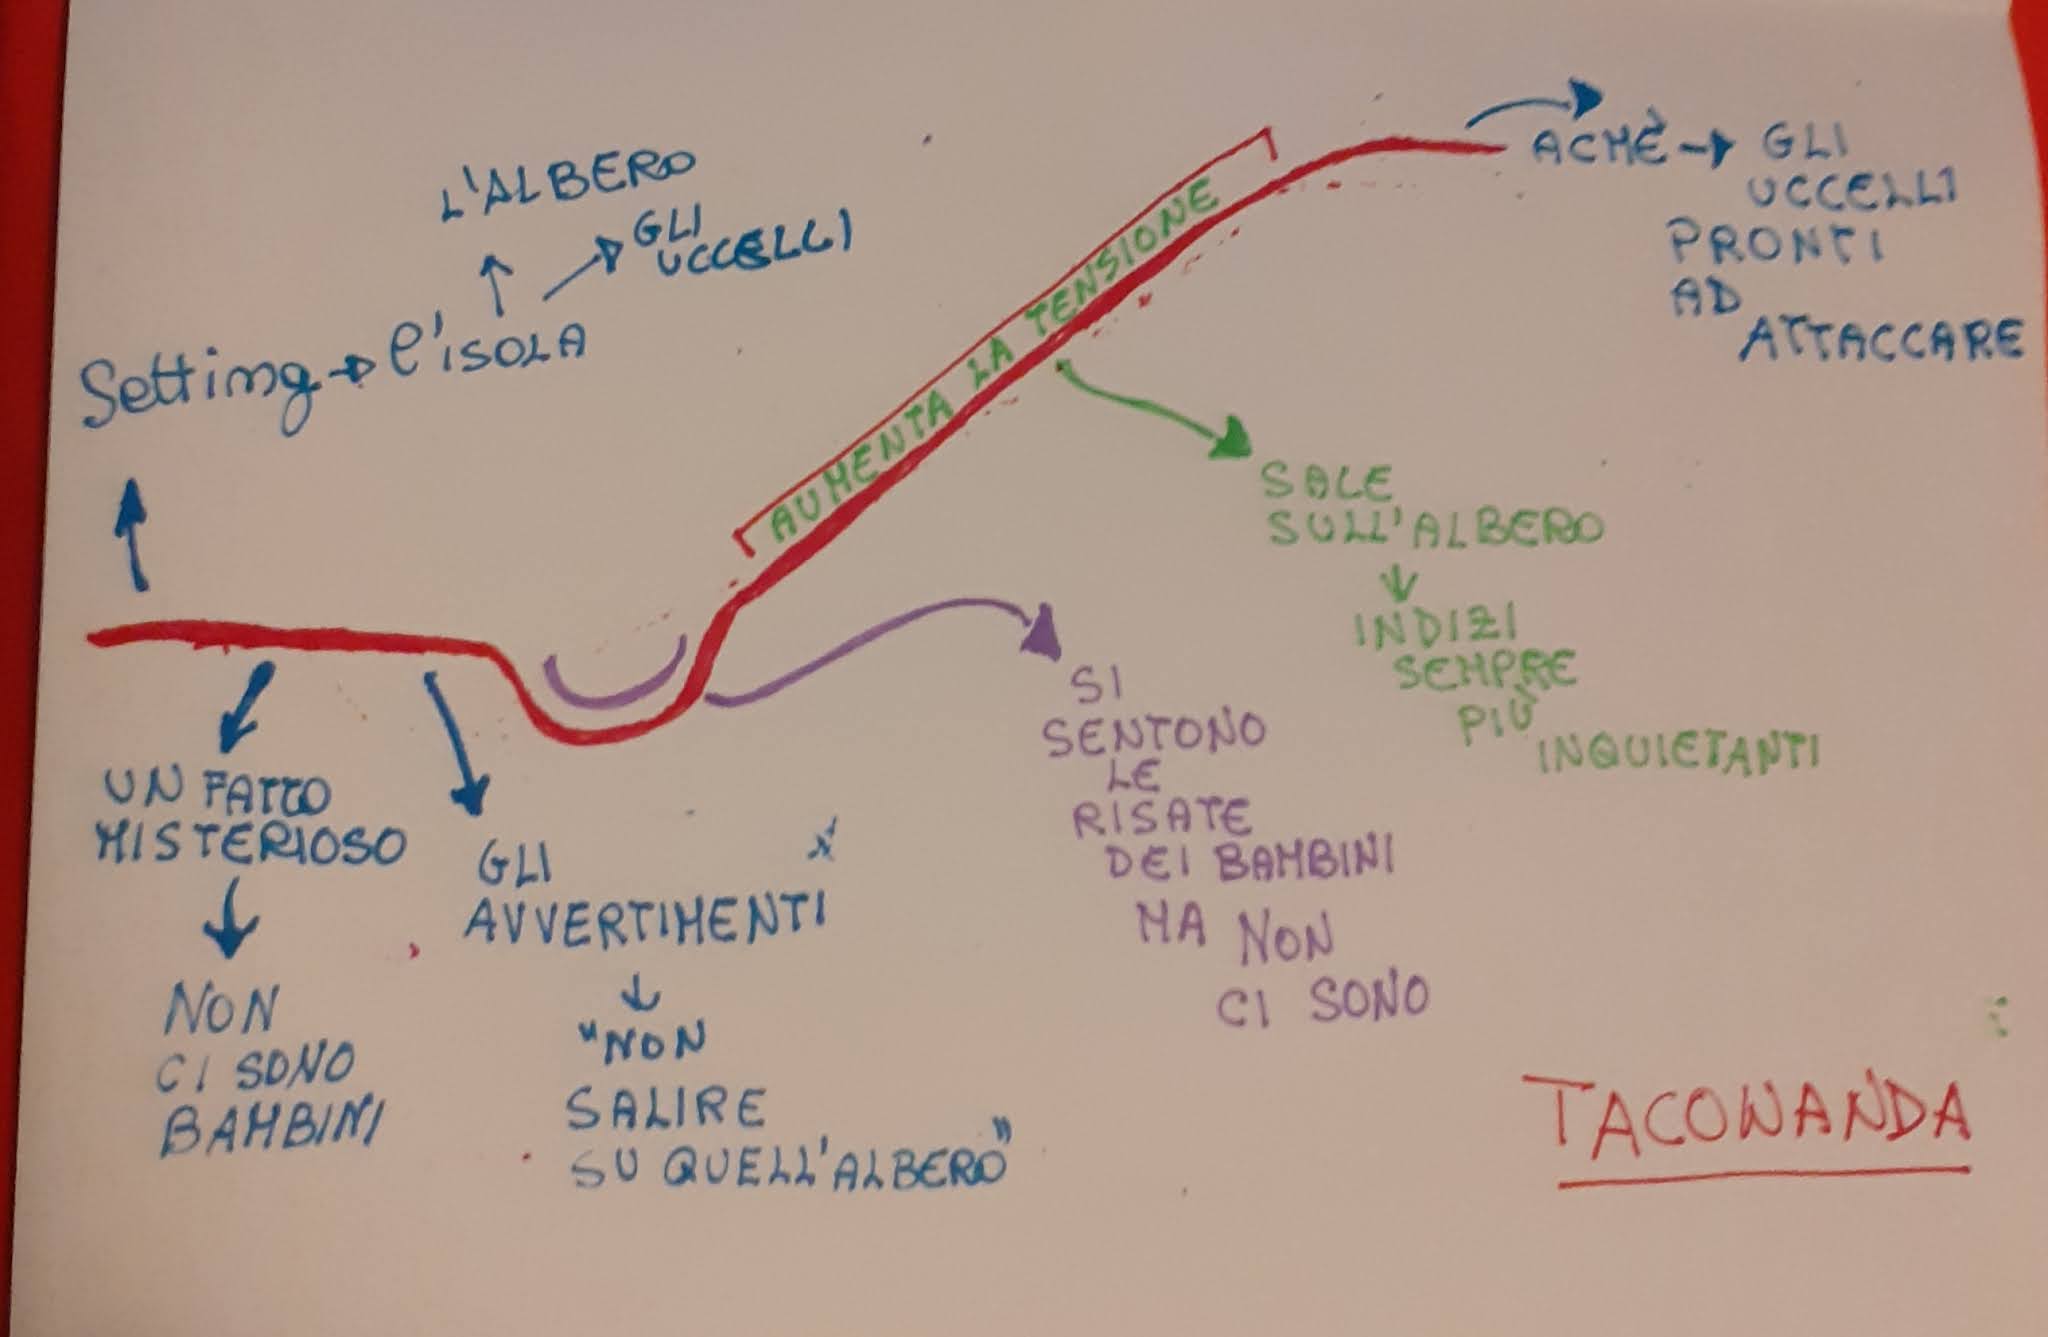 L'ALBERO
GLI
UCCELLI
Setting → l'ISOLA
AUMENTA LA TENSIONE
ACMÈ → GLI
UCCELLI
PRONTI
AD
ATTACCARE
SALE
SULL'ALBERO
INDIZI
SEMPRE
PIÙ
INQUIETANTI
SI
SENTONO
LE
RISATE
DEI BAMBINI
MA NON
CI SONO
UN FATTO
MISTERIOSO
NON
CI SONO
BAMBINI
GLI
AVVERTIMENTI
"NON
SALIRE
SU QUELL'ALBERO"
TACOWANDA